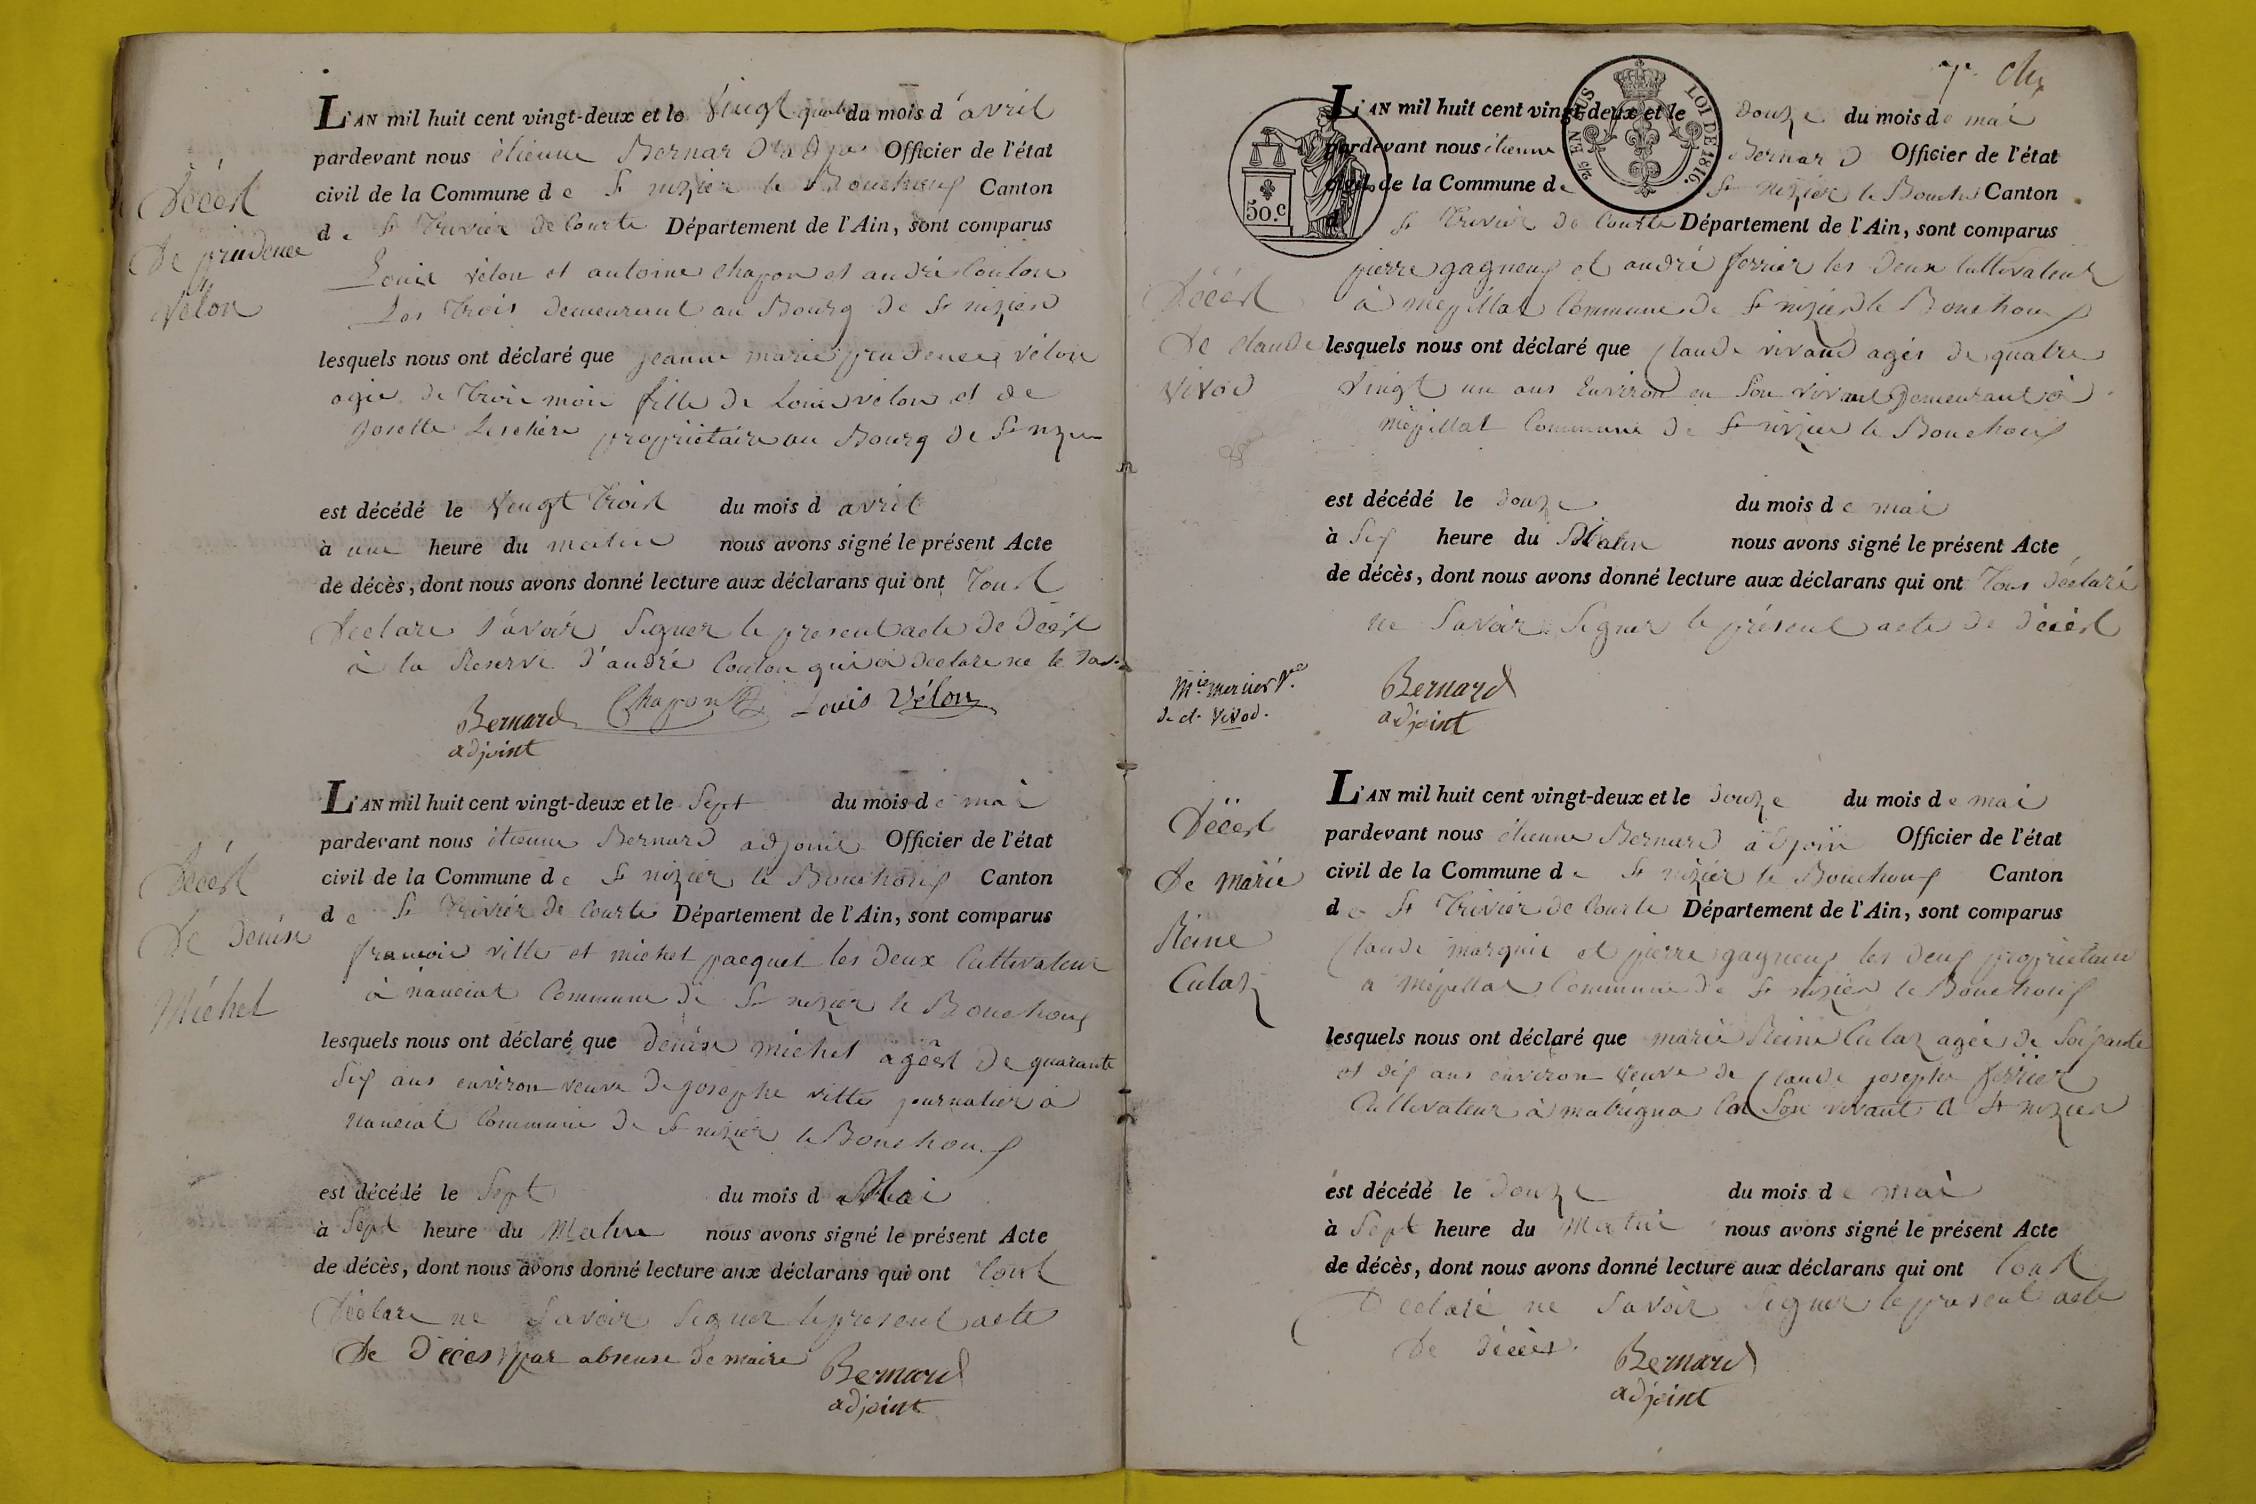 Décest
de prudence
vélon
L'AN mil huit cent vingt-deux et le vingt quatre du mois d'avril
pardevant nous étienne Bernard Officier de l'état
civil de la Commune de St nizier le Bouchoux Canton
de St Trivier de Courte Département de l'Ain, sont comparus
Louis vélon et antoine chapon et andré Couton
Les trois demeurant au Bourg de St nizier
lesquels nous ont déclaré que jeanne marie prudence vélon
agée de trois mois fille de Louis vélon et de
josette proprietaire au Bourg de St nizier
est décédé le Vengt troist du mois d avril
à une heure du matin nous avons signé le présent Acte
de décès, dont nous avons donné lecture aux déclarans qui ont toust
Declare savoir Signer le present acte de Décest
à la Reserve d'andré Couton qui a declare ne le
Bernard Chapon Louis Vélon
adjoint
Décest
de denise
Michel
L'AN mil huit cent vingt-deux et le Sept du mois de mai
pardevant nous étienne Bernard adjoint Officier de l'état
civil de la Commune de St nizier le Bouchoux Canton
de St Trivier de Courte Département de l'Ain, sont comparus
francois ville et michel pacquet les deux Cultivateur
à nanciat Commune de St nizier le Bouchoux
lesquels nous ont déclaré que denise michel agéest de quarante
Six ans environ veuve de josephe ville journalier à
nanciat Commune de St nizier le Bouchoux
est décédé le Sept du mois d Mai
à Sept heure du Matin nous avons signé le présent Acte
de décès, dont nous avons donné lecture aux déclarans qui ont toust
Déclare ne Savoir Signer le present acte
De Décès par absense de maire Bernard
adjoint
7e
50.c
EN SUS
LOI DE 1816.
Décest
de claude
vivod
L'AN mil huit cent vingt-deux et le douze du mois de mai
pardevant nous étienne Bernard Officier de l'état
civil de la Commune de St nizier le Bouchou Canton
d St Trivier de Courte Département de l'Ain, sont comparus
pierre gagneux et andré ferrier les deux Cultivateur
à mépillat Commune de St nizier le Bouchoux
lesquels nous ont déclaré que Claude vivand agés de quatre
vingt un ans Environ en Son vivant Demeurant à
mépillat Commune de St nizier le Bouchoux
est décédé le douze du mois de mai
à Six heure du Matin nous avons signé le présent Acte
de décès, dont nous avons donné lecture aux déclarans qui ont tous déclaré
ne Savoir Signer le présent acte de décest
Mie mercier Ve
de cl. vivod.
Bernard
adjoint
Décest
De marie
Reine
Culaz
L'AN mil huit cent vingt-deux et le douze du mois de mai
pardevant nous étienne Bernard adjoin Officier de l'état
civil de la Commune de St nizier le Bouchoux Canton
de St Trivier de Courte Département de l'Ain, sont comparus
Claude marquit et pierre gagneux les deux proprietaire
a mépillat Commune de St nizier le Bouchoux
lesquels nous ont déclaré que marie Reine Culaz agée de Soixante
et dix ans environ Veuve de Claude josephe ferrier
Cultivateur à Son vivant a St nizier
est décédé le douze du mois de mai
à Sept heure du Matin nous avons signé le présent Acte
de décès, dont nous avons donné lecture aux déclarans qui ont toust
Déclaré ne Savoir Signer le present acte
De décès.
Bernard
adjoint